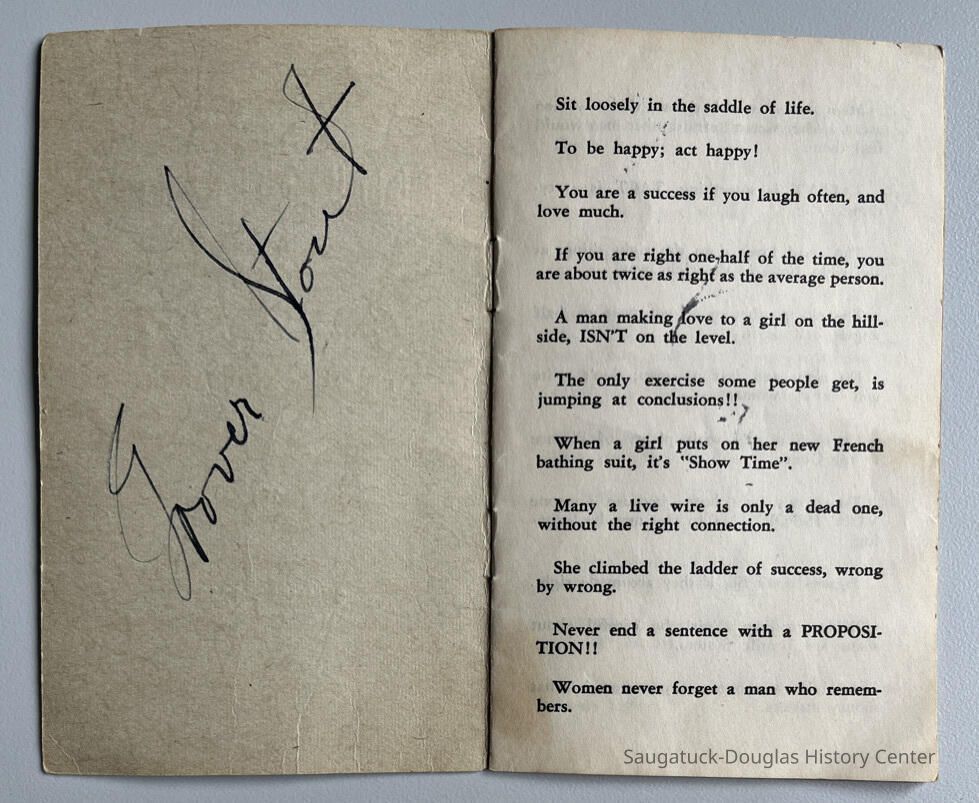 Grover Stout
Sit loosely in the saddle of life.
To be happy; act happy!
You are a success if you laugh often, and
love much.
If you are right one-half of the time, you
are about twice as right as the average person.
A man making love to a girl on the hill-
side, ISN'T on the level.
The only exercise some people get, is
jumping at conclusions!!
When a girl puts on her new French
bathing suit, it's "Show Time".
Many a live wire is only a dead one,
without the right connection.
She climbed the ladder of success, wrong
by wrong.
Never end a sentence with a PROPOSI-
TION!!
Women never forget a man who remem-
bers.
Saugatuck-Douglas History Center